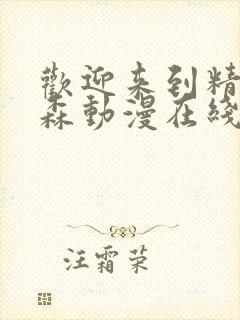 歡迎来到精
森動漫在綫
汪霜荣